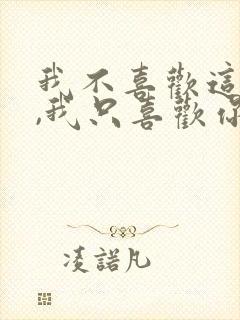 我不喜歡這
,我只喜歡你
凌諾凡